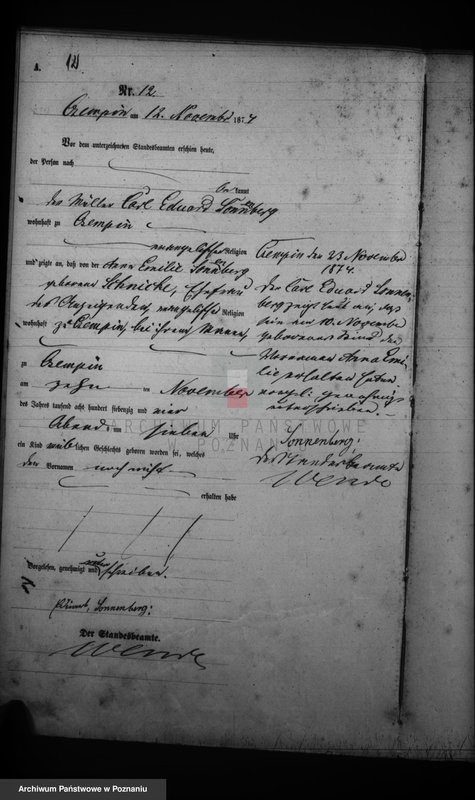 A.
12
Nr. 12
Czempin am 12. November 1874
Vor dem unterzeichneten Standesbeamten erschien heute,
der Person nach
bekannt
der Müller Carl Eduard Sonnenberg
wohnhaft zu Czempin
evangelischer Religion
und zeigte an, daß von der Anna Emilie Sonnenberg
geborene Schnicke, Ehefrau
des Anzeigenden, evangelischer Religion
wohnhaft zu Czempin, bei ihrem Manne,
zu Czempin
am zehn ten November
des Jahres tausend acht hundert siebenzig und vier
Abends um sieben Uhr
ein Kind weiblichen Geschlechts geboren worden sei, welches
den Vornamen noch nicht
erhalten habe
Vorgelesen, genehmigt und unterschrieben.
Sonnenberg.
Der Standesbeamte.
Wende
Czempin den 23 November
1874.
Der Carl Eduard Sonnenberg
zeigt heute an, daß
sein am 10. November
geborenes Kind den
Vornamen Anna Emilie
erhalten habe.
unterschrieben.
Sonnenberg.
der Standesbeamte
Wende
ARCHIWUM PAŃSTWOWE
W POZNANIU
Archiwum Państwowe w Poznaniu